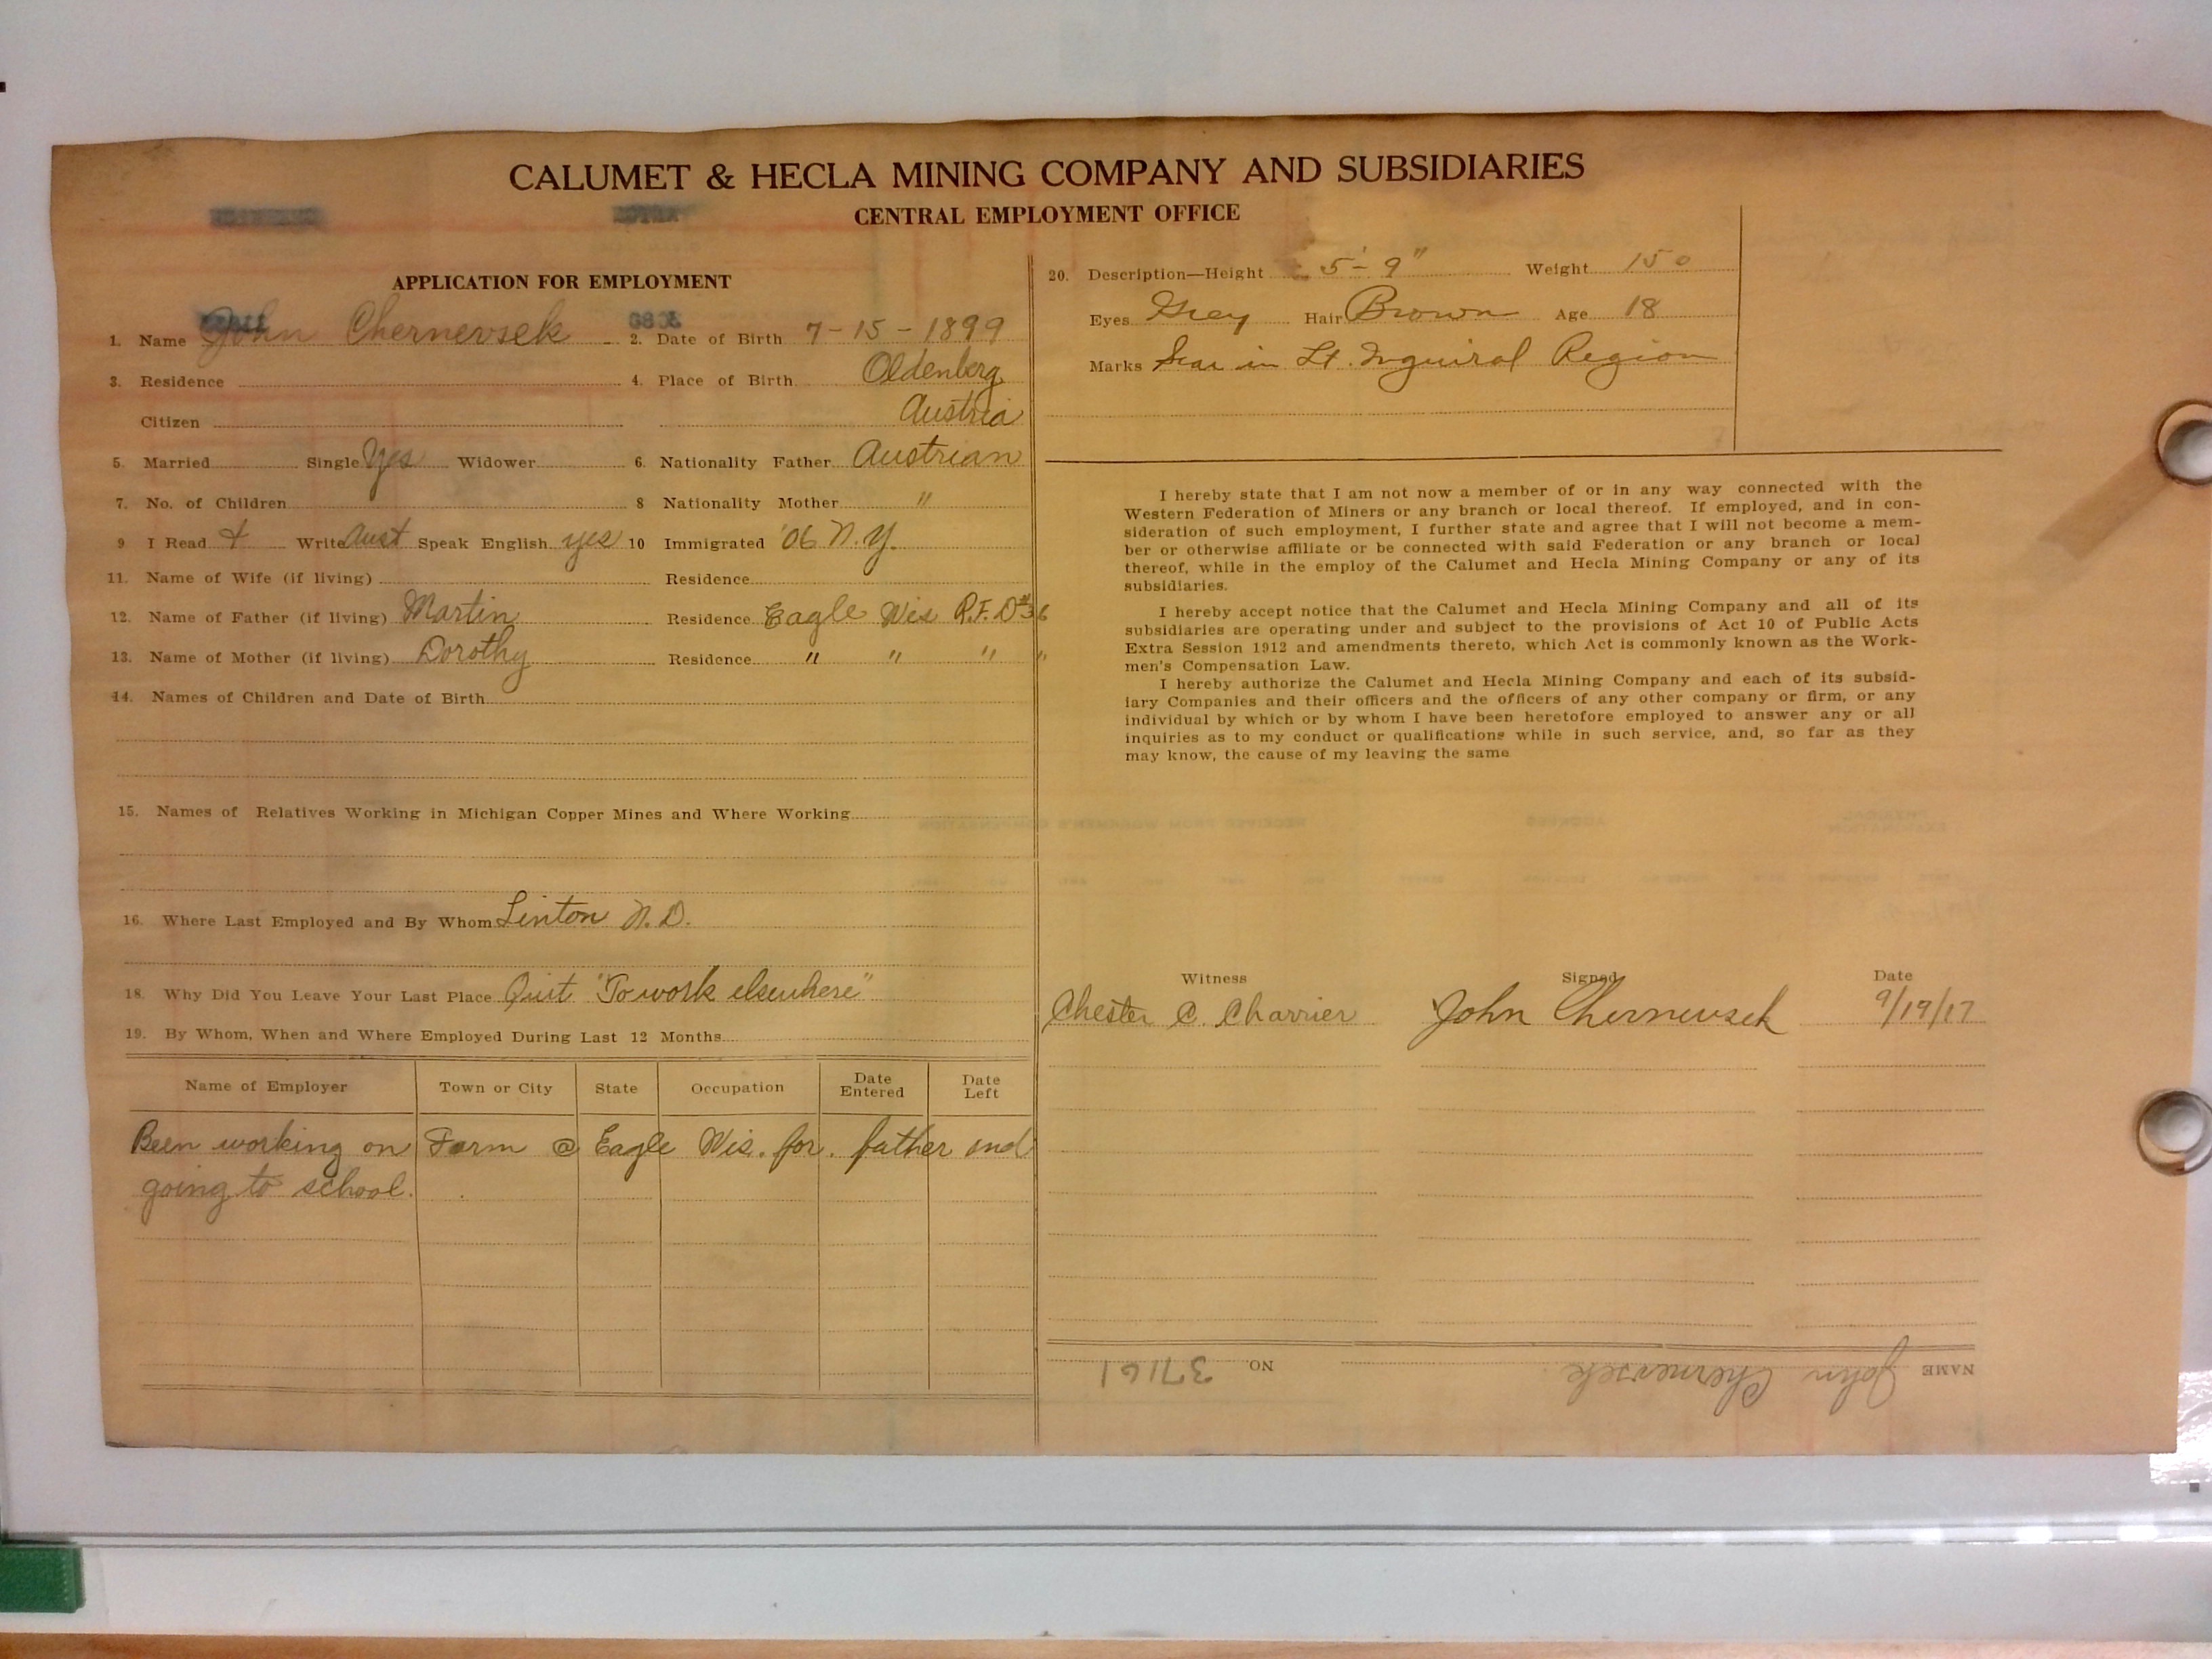 CALUMET & HECLA MINING COMPANY AND SUBSIDIARIES
CENTRAL EMPLOYMENT OFFICE
APPLICATION FOR EMPLOYMENT
1. Name John Chernevsek 2. Date of Birth 7-15-1899
3. Residence 4. Place of Birth Oldenberg
Citizen Austria
5. Married Single Yes Widower 6. Nationality Father Austrian
7. No. of Children 8 Nationality Mother "
9 I Read & Write Aust Speak English yes 10 Immigrated '06 N.Y.
11. Name of Wife (if living) Residence
12. Name of Father (if living) Martin Residence Eagle Wis R.F.D #36
13. Name of Mother (if living) Dorothy Residence " " " "
14. Names of Children and Date of Birth
15. Names of Relatives Working in Michigan Copper Mines and Where Working
16. Where Last Employed and By Whom Linton N.D.
18. Why Did You Leave Your Last Place Quit "To work elsewhere"
19. By Whom, When and Where Employed During Last 12 Months
Name of Employer Town or City State Occupation Date Entered Date Left
Been working on Farm @ Eagle Wis. for father and
going to school.
20. Description—Height 5'-9" Weight 150
Eyes Grey Hair Brown Age 18
Marks Scar in Lt. Inguiral Region
I hereby state that I am not now a member of or in any way connected with the
Western Federation of Miners or any branch or local thereof. If employed, and in con-
sideration of such employment, I further state and agree that I will not become a mem-
ber or otherwise affiliate or be connected with said Federation or any branch or local
thereof, while in the employ of the Calumet and Hecla Mining Company or any of its
subsidiaries.
I hereby accept notice that the Calumet and Hecla Mining Company and all of its
subsidiaries are operating under and subject to the provisions of Act 10 of Public Acts
Extra Session 1912 and amendments thereto, which Act is commonly known as the Work-
men's Compensation Law.
I hereby authorize the Calumet and Hecla Mining Company and each of its subsid-
iary Companies and their officers and the officers of any other company or firm, or any
individual by which or by whom I have been heretofore employed to answer any or all
inquiries as to my conduct or qualifications while in such service, and, so far as they
may know, the cause of my leaving the same
Witness Signed Date
Chester C. Charrier John Chernevsek 9/19/17
NAME John Chernevsek NO 37161